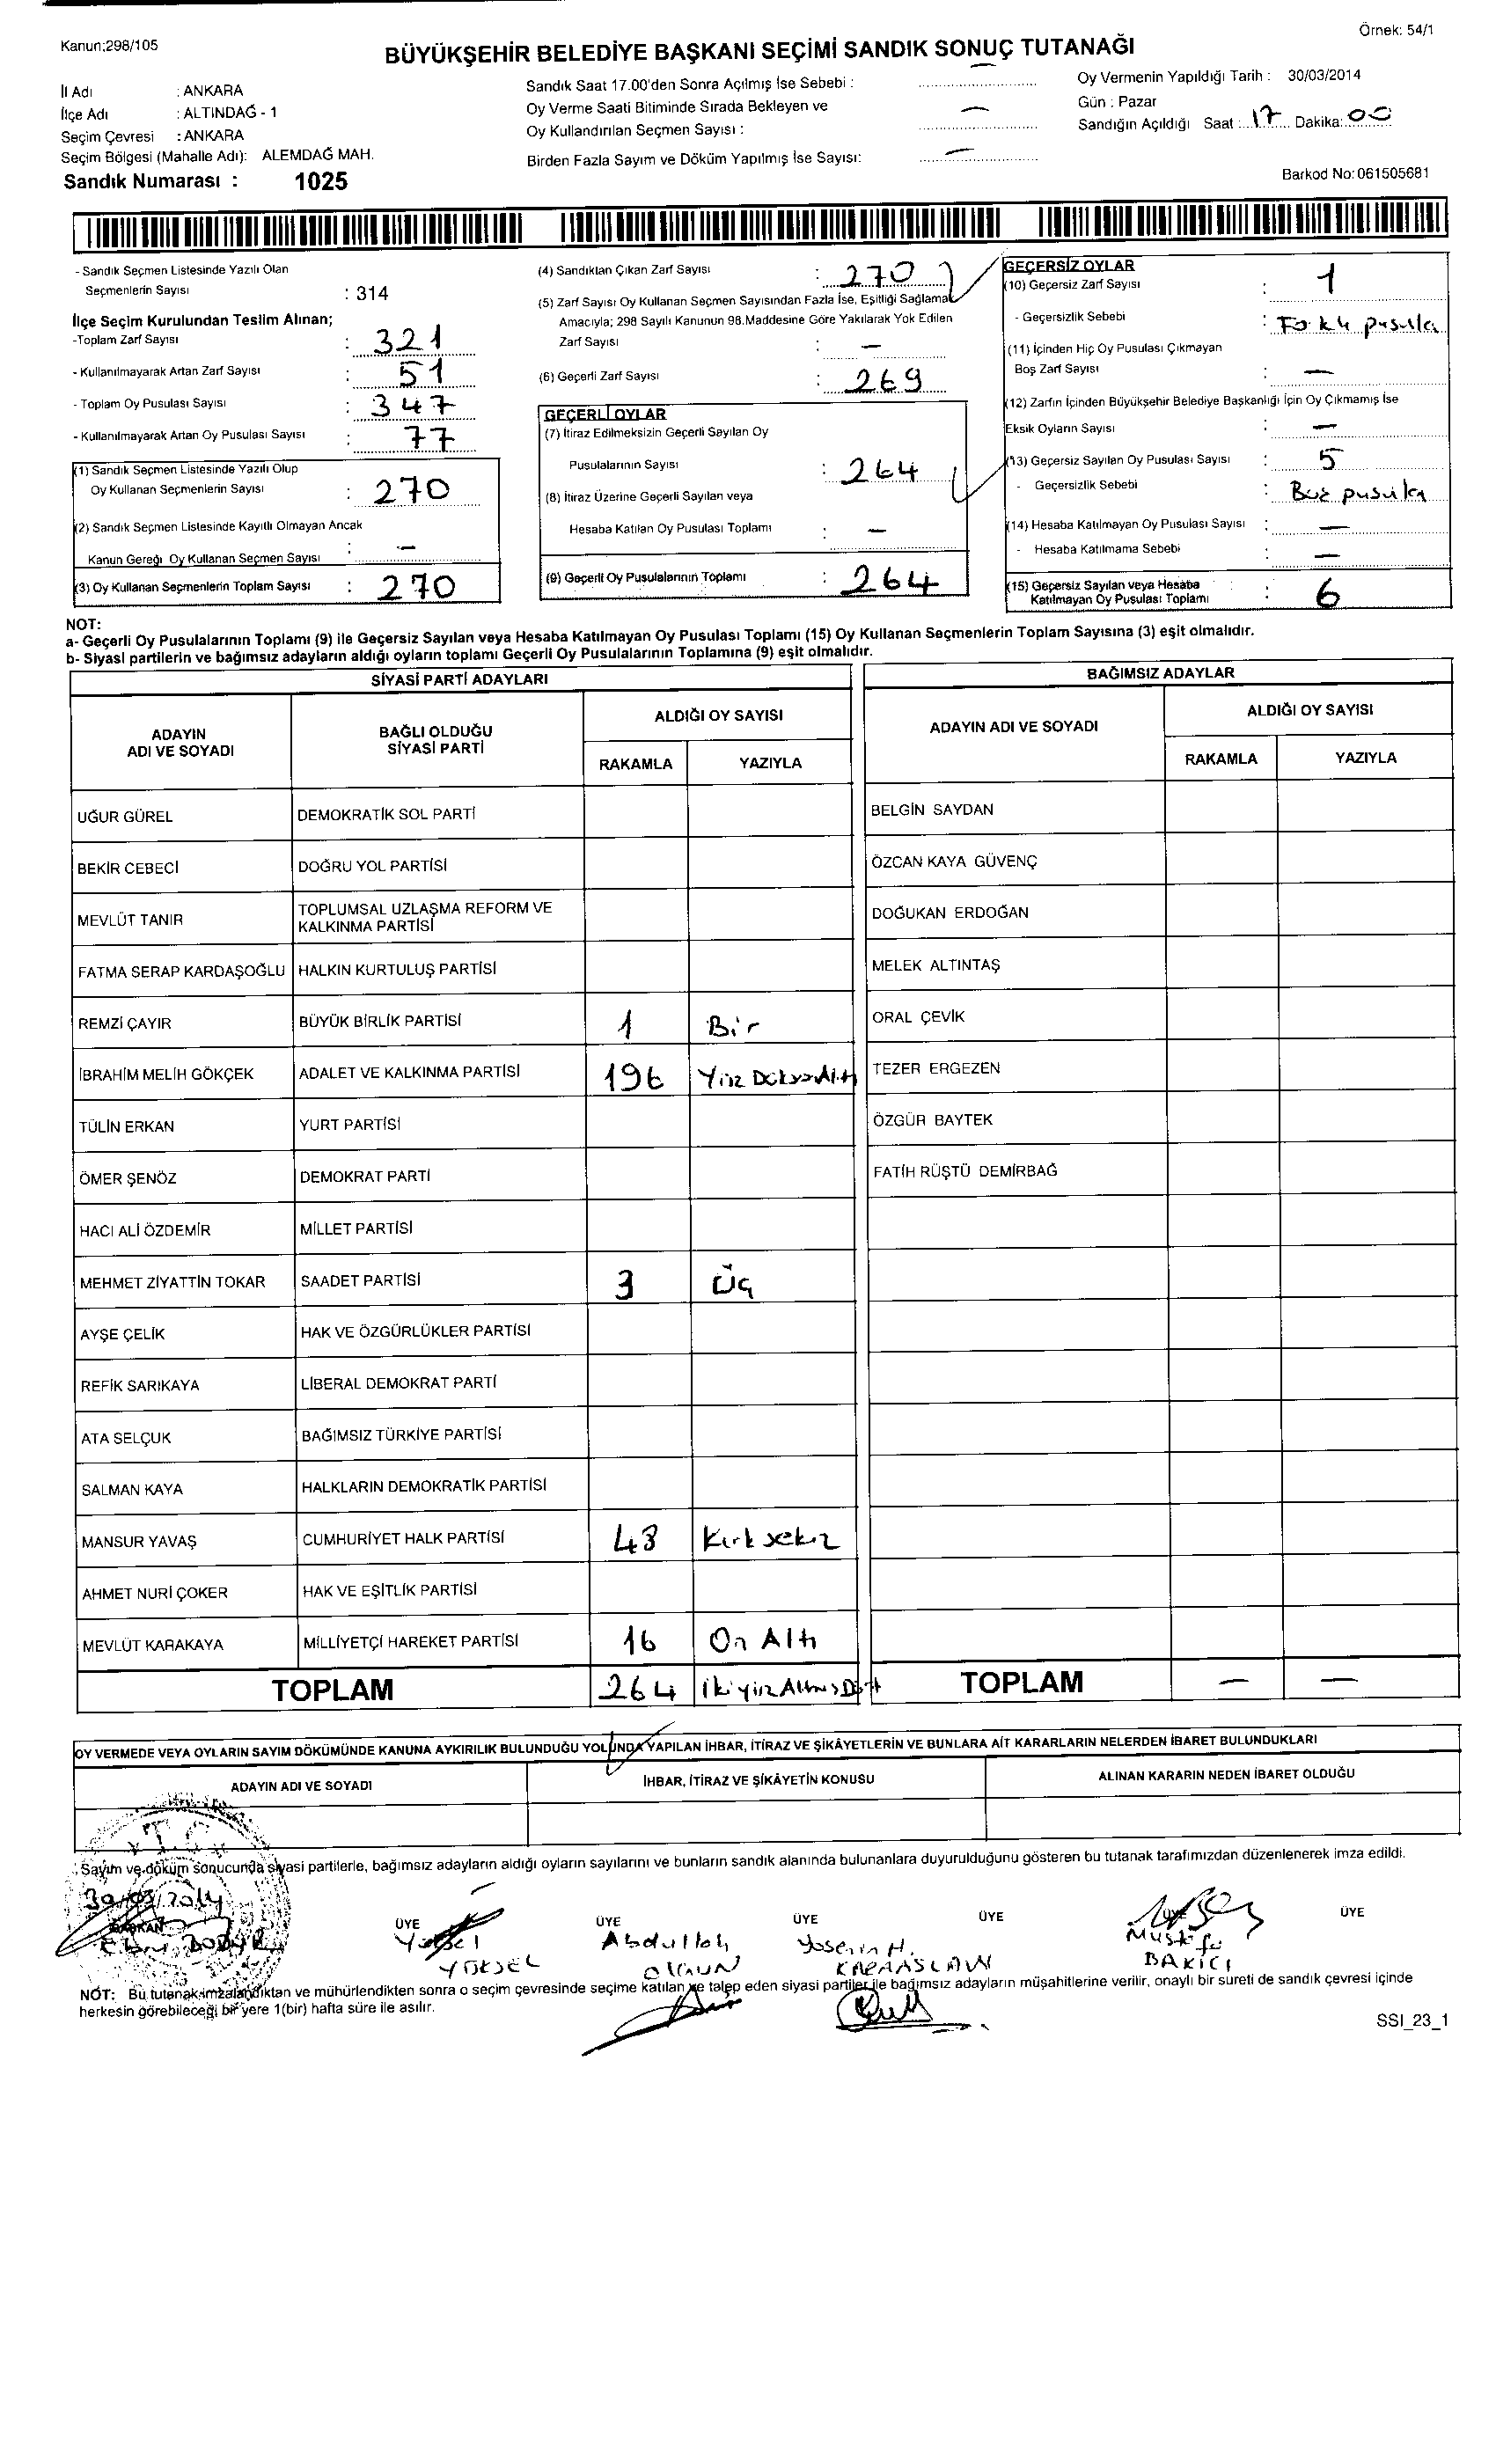 Kanun;298/105
Örnek: 54/1
BÜYÜKŞEHİR BELEDİYE BAŞKANI SEÇİMİ SANDIK SONUÇ TUTANAĞI
İl Adı : ANKARA
İlçe Adı : ALTINDAĞ - 1
Seçim Çevresi : ANKARA
Seçim Bölgesi (Mahalle Adı): ALEMDAĞ MAH.
Sandık Numarası : 1025
Sandık Saat 17.00'den Sonra Açılmış İse Sebebi : —
Oy Verme Saati Bitiminde Sırada Bekleyen ve
Oy Kullandırılan Seçmen Sayısı : —
Birden Fazla Sayım ve Döküm Yapılmış İse Sayısı: —
Oy Vermenin Yapıldığı Tarih : 30/03/2014
Gün : Pazar
Sandığın Açıldığı Saat : 17 Dakika: 00
Barkod No: 061505681
- Sandık Seçmen Listesinde Yazılı Olan
Seçmenlerin Sayısı : 314
İlçe Seçim Kurulundan Teslim Alınan;
-Toplam Zarf Sayısı : 321
- Kullanılmayarak Artan Zarf Sayısı : 51
- Toplam Oy Pusulası Sayısı : 347
- Kullanılmayarak Artan Oy Pusulası Sayısı : 77
(1) Sandık Seçmen Listesinde Yazılı Olup
Oy Kullanan Seçmenlerin Sayısı : 270
(2) Sandık Seçmen Listesinde Kayıtlı Olmayan Ancak
Kanun Gereği Oy Kullanan Seçmen Sayısı : —
(3) Oy Kullanan Seçmenlerin Toplam Sayısı : 270
(4) Sandıktan Çıkan Zarf Sayısı : 270
(5) Zarf Sayısı Oy Kullanan Seçmen Sayısından Fazla İse, Eşitliği Sağlamak
Amacıyla; 298 Sayılı Kanunun 98.Maddesine Göre Yakılarak Yok Edilen
Zarf Sayısı : —
(6) Geçerli Zarf Sayısı : 269
GEÇERLİ OYLAR
(7) İtiraz Edilmeksizin Geçerli Sayılan Oy
Pusulalarının Sayısı : 264
(8) İtiraz Üzerine Geçerli Sayılan veya
Hesaba Katılan Oy Pusulası Toplamı : —
(9) Geçerli Oy Pusulalarının Toplamı : 264
GEÇERSİZ OYLAR
(10) Geçersiz Zarf Sayısı : 1
- Geçersizlik Sebebi : Farklı pusula
(11) İçinden Hiç Oy Pusulası Çıkmayan
Boş Zarf Sayısı : —
(12) Zarfın İçinden Büyükşehir Belediye Başkanlığı İçin Oy Çıkmamış İse
Eksik Oyların Sayısı : —
(13) Geçersiz Sayılan Oy Pusulası Sayısı : 5
- Geçersizlik Sebebi : pusula
(14) Hesaba Katılmayan Oy Pusulası Sayısı : —
- Hesaba Katılmama Sebebi : —
(15) Geçersiz Sayılan veya Hesaba
Katılmayan Oy Pusulası Toplamı : 6
NOT:
a- Geçerli Oy Pusulalarının Toplamı (9) ile Geçersiz Sayılan veya Hesaba Katılmayan Oy Pusulası Toplamı (15) Oy Kullanan Seçmenlerin Toplam Sayısına (3) eşit olmalıdır.
b- Siyasi partilerin ve bağımsız adayların aldığı oyların toplamı Geçerli Oy Pusulalarının Toplamına (9) eşit olmalıdır.
SİYASİ PARTİ ADAYLARI
ADAYIN ADI VE SOYADI
BAĞLI OLDUĞU SİYASİ PARTİ
ALDIĞI OY SAYISI
RAKAMLA YAZIYLA
UĞUR GÜREL DEMOKRATİK SOL PARTİ
BEKİR CEBECİ DOĞRU YOL PARTİSİ
MEVLÜT TANIR TOPLUMSAL UZLAŞMA REFORM VE
KALKINMA PARTİSİ
FATMA SERAP KARDAŞOĞLU HALKIN KURTULUŞ PARTİSİ
REMZİ ÇAYIR BÜYÜK BİRLİK PARTİSİ 1 Bir
İBRAHİM MELİH GÖKÇEK ADALET VE KALKINMA PARTİSİ 196 Yüz Doksan Altı
TÜLİN ERKAN YURT PARTİSİ
ÖMER ŞENÖZ DEMOKRAT PARTİ
HACI ALİ ÖZDEMİR MİLLET PARTİSİ
MEHMET ZİYATTİN TOKAR SAADET PARTİSİ 3 Üç
AYŞE ÇELİK HAK VE ÖZGÜRLÜKLER PARTİSİ
REFİK SARIKAYA LİBERAL DEMOKRAT PARTİ
ATA SELÇUK BAĞIMSIZ TÜRKİYE PARTİSİ
SALMAN KAYA HALKLARIN DEMOKRATİK PARTİSİ
MANSUR YAVAŞ CUMHURİYET HALK PARTİSİ 48 Kırk sekiz
AHMET NURİ ÇOKER HAK VE EŞİTLİK PARTİSİ
MEVLÜT KARAKAYA MİLLİYETÇİ HAREKET PARTİSİ 16 On Altı
TOPLAM 264 İkiyüz Altmış Dört
BAĞIMSIZ ADAYLAR
ADAYIN ADI VE SOYADI
ALDIĞI OY SAYISI
RAKAMLA YAZIYLA
BELGİN SAYDAN
ÖZCAN KAYA GÜVENÇ
DOĞUKAN ERDOĞAN
MELEK ALTINTAŞ
ORAL ÇEVİK
TEZER ERGEZEN
ÖZGÜR BAYTEK
FATİH RÜŞTÜ DEMİRBAĞ
TOPLAM — —
OY VERMEDE VEYA OYLARIN SAYIM DÖKÜMÜNDE KANUNA AYKIRILIK BULUNDUĞU YOLUNDA YAPILAN İHBAR, İTİRAZ VE ŞİKÂYETLERİN VE BUNLARA AİT KARARLARIN NELERDEN İBARET BULUNDUKLARI
ADAYIN ADI VE SOYADI İHBAR, İTİRAZ VE ŞİKÂYETİN KONUSU ALINAN KARARIN NEDEN İBARET OLDUĞU
Sayım ve döküm sonucunda siyasi partilerle, bağımsız adayların aldığı oyların sayılarını ve bunların sandık alanında bulunanlara duyurulduğunu gösteren bu tutanak tarafımızdan düzenlenerek imza edildi.
30/03/2014
BAŞKAN ÜYE ÜYE ÜYE ÜYE ÜYE ÜYE
Yüksel Abdullah H. Mustafa
YÜKSEL OLGUN KARAASLAN BAKICI
NOT: Bu tutanak imzalandıktan ve mühürlendikten sonra o seçim çevresinde seçime katılan ve talep eden siyasi partiler ile bağımsız adayların müşahitlerine verilir, onaylı bir sureti de sandık çevresi içinde
herkesin görebileceği bir yere 1(bir) hafta süre ile asılır.
SSI_23_1